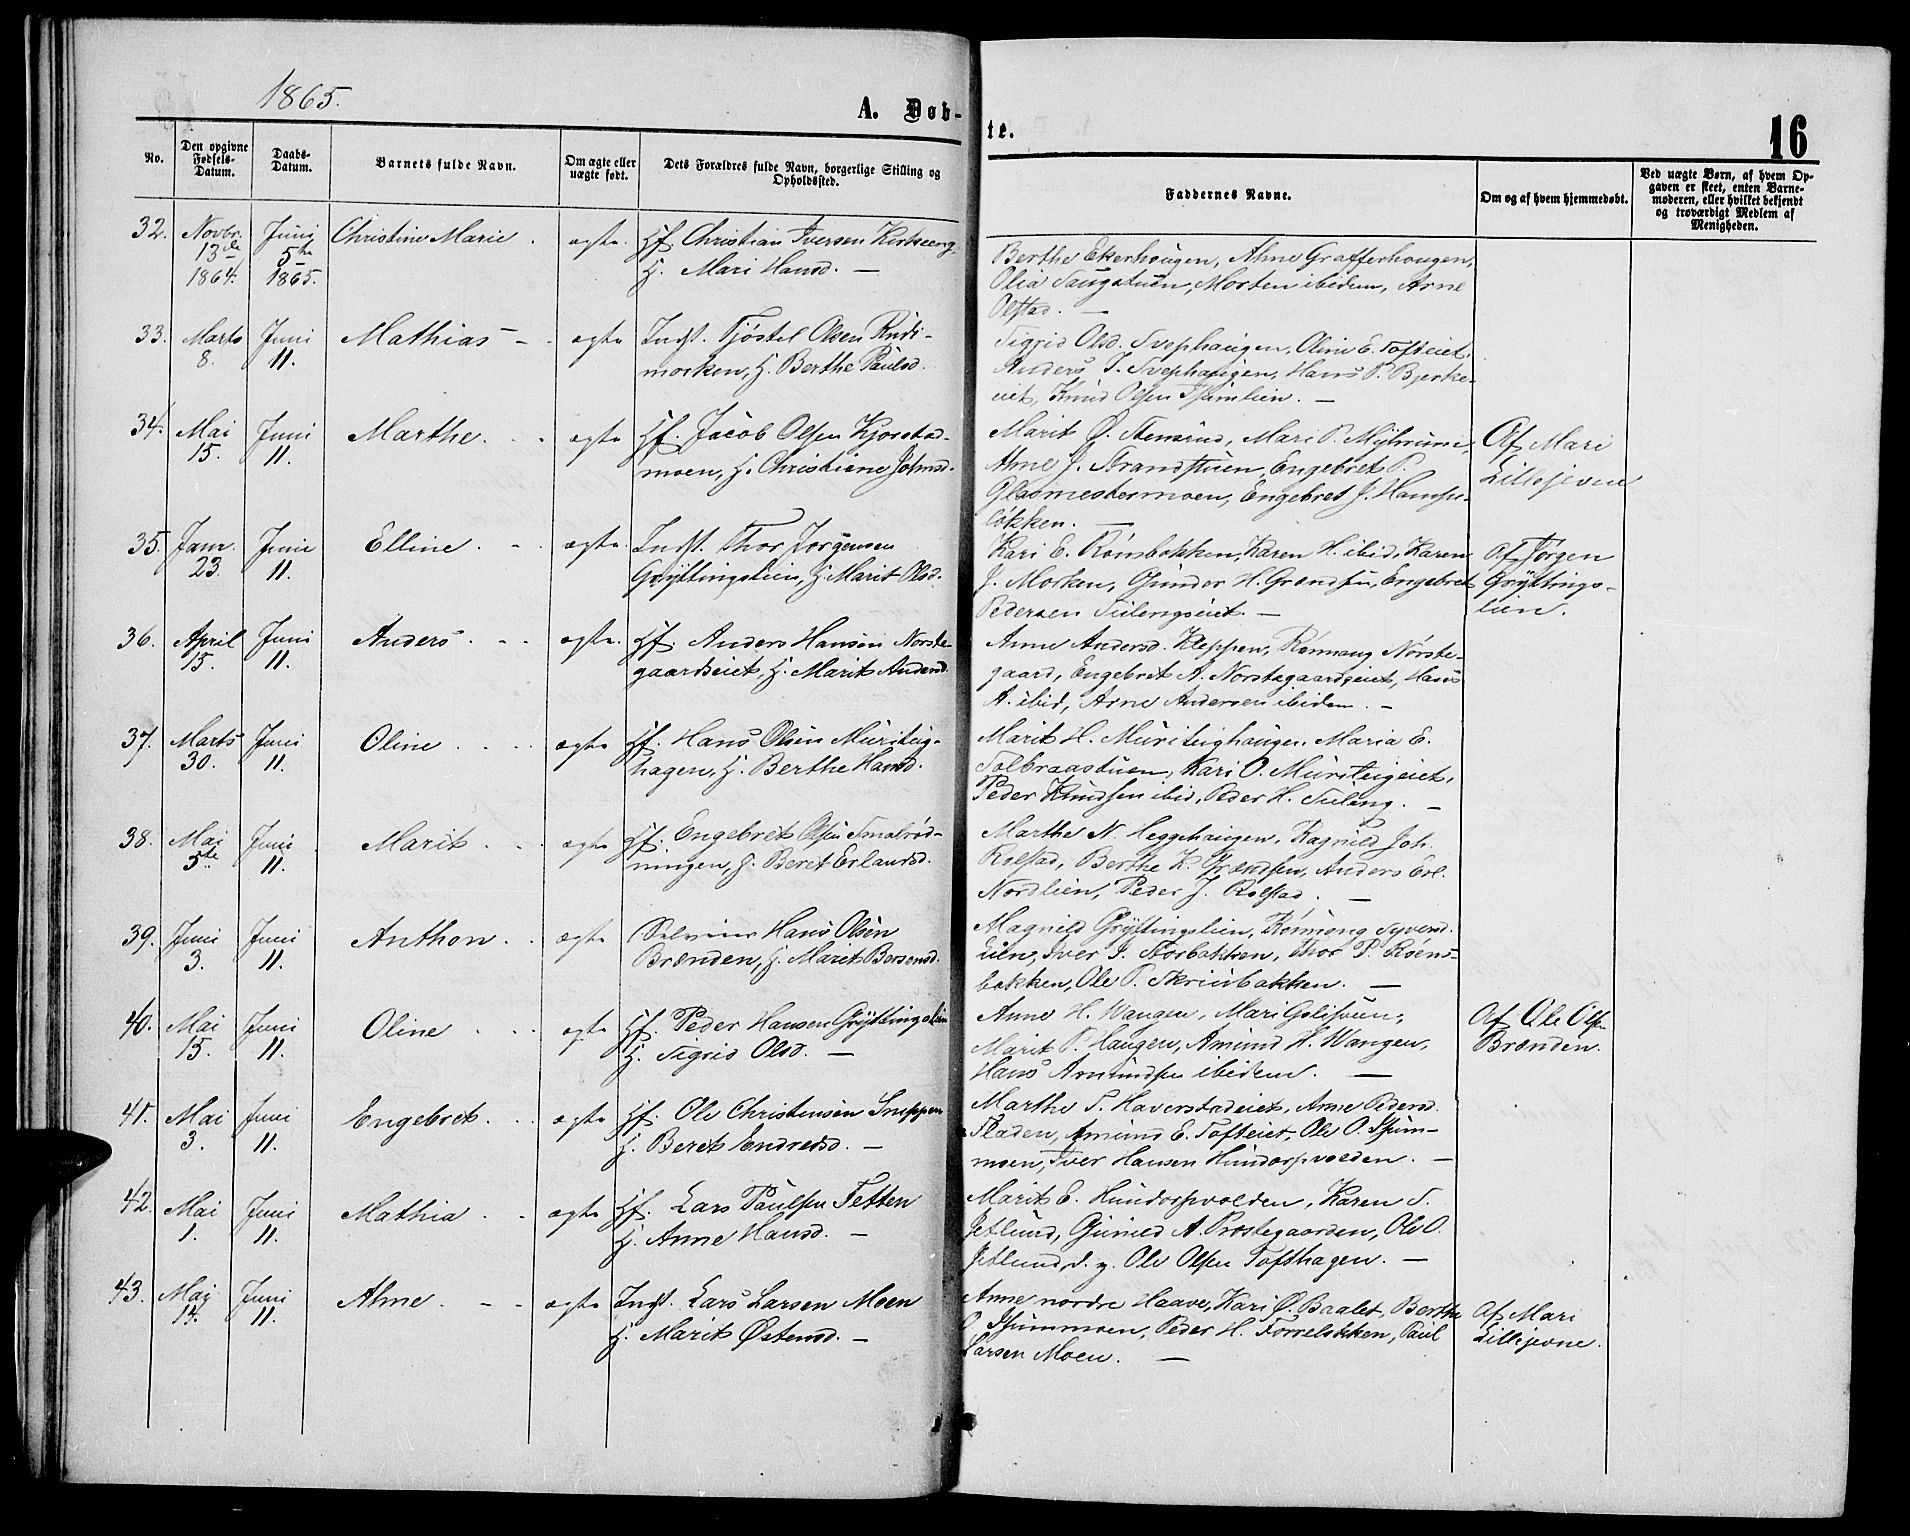 1865.
A. Døb-
te.
16
No.
Den opgivne
Fødsels-
Datum.
Daabs-
Datum.
Barnets fulde Navn.
Om ægte eller
uægte født.
Dets Forældres fulde Navn, borgerlige Stilling og
Opholdssted.
Faddernes Navne.
Om og af hvem hjemmedøbt.
Ved uægte Børn, af hvem Op-
gaven er skeet, enten Barne-
moderen, eller hvilket bekjendt
og troværdigt Medlem af
Menigheden.
32. Novbr. 13de 1864. Juni 5te 1865. Christine Marie. ægte. Hf. Christian Iversen Kirkeeng,
H. Mari Hansd. —
Berthe Ekerhougen, Ahne Grafferhougen,
Olia Saugstuen, Morten ibidem, Arne
Olstad. —
33. Marts 8. Juni 11. Mathias — ægte Indst. Tjøstel Olsen Rudi-
morken, H. Berthe Paulsd.
Sigrid Olsd. Svephaugen, Oline E. Tofteiet,
Anders J. Svephaugen, Hans P. Bjerke-
eiet, Knud Olsen
34. Mai 15. Juni 11. Marthe. ægte Hf. Jacob Olsen Kjorstad-
moen, H. Christiane Johnsd.
Marit Ø. Stensrud, Mari P. Myhrum,
Ahne J. Strandstuen, Engebret P.
Glasmestermoen, Engebret J.
løkken. —
Af Mari
Lillejevne
35. Janr. 23. Juni 11. Elline. ægte. Indst. Thor Jørgensen
Gryttingslien, H. Marit Olsd.
Kari E. Rønsbakken, Karen H. ibid, Karen
J. Morken, Gunder H. Engebret
Pedersen Tulengseiet. —
Af Jørgen
Gryttings-
lien.
36. April 15. Juni 11. Anders. ægte. Hf. Anders Hansen Norste-
gaardseiet, H. Marit Andersd.
Anne Andersd. Kleppen, Rønnaug Nørste-
gaard, Engebret A. Norstegaardseiet, Hans
A. ibid, Arne Andersen ibidem. —
37. Marts 30. Juni 11. Oline. ægte Hf. Hans Olsen Muriteig-
hagen, H. Berthe Hansd.
Marit H. Muriteighaugen, Maria E.
Solbraastuen, Kari O. Muriteigeiet,
Peder Knudsen ibid, Peder H. Tuleng. —
38. Mai 5te Juni 11. Marit. ægte Hf. Engebret Olsen Smalrød-
ningen, H. Beret Erlandsd.
Marthe N. Heggehaugen, Ragnild Joh.
Rolstad, Berthe K. Anders Erl.
Nordlien, Peder J. Rolstad. —
39. Juni 3. Juni 11. Anthon. ægte Selveier Hans Olsen
Brænden, H. Marit
Magnild Gryttingslien, Rønnong Syversd.
Lien, Iver J. Storbakken, Thor P. Røens-
bakken, Ole P. Skriubakken. —
40. Mai 15. Juni 11. Oline ægte Hf. Peder Hansen Gryttingslien
H. Sigrid Olsd. —
Anne H. Wangen, Mari
Marit P. Haugen, Amund H. Wangen,
Hans Amundsen ibidem. —
Af Ole Olsen
Brænden.
41. Mai 3. Juni 11. Engebret. ægte Hf. Ole Christensen Snuppen
H. Beret Endresd. —
Marthe T. Haverstadeiet, Anne Pedersd.
Fladen, Amund E. Tofteiet, Ole O.
moen, Iver Hansen Hundorpvolden. —
42. Mai 1. Juni 11. Mathia. ægte Hf. Lars Paulsen Tetten
H. Anne Hansd. —
Marit E. Hundorpvolden, Karen
Jetlund, Gunild A. Prestegaarden, Ole O.
Jetlund, d. y. Ole Olsen Tofthagen. —
43. Mai 14. Juni 11. Ahne. ægte Indst. Lars Larsen Moen
H. Marit Østensd. —
Anne nordre Haave, Kari Ø. Baalet, Berthe
Peder H. Forreløkken, Paul
Larsen Moen. —
Af Mari
Lillejevne.